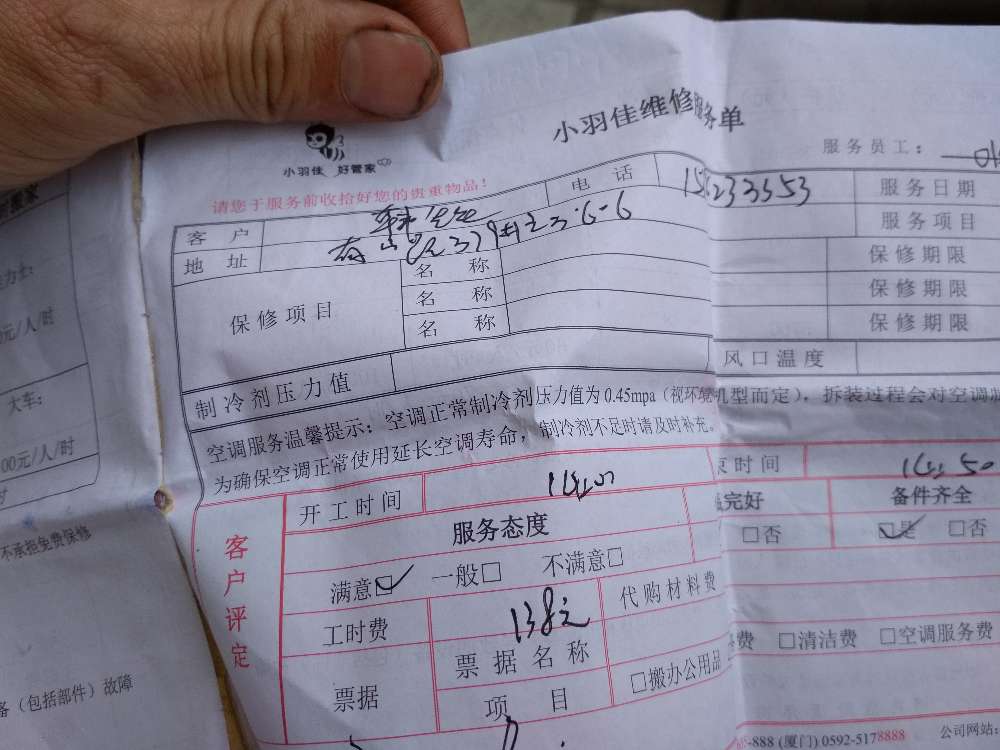 小羽佳维修服务单
小羽佳 好管家
服务员工：
请您于服务前收拾好您的贵重物品！
客 户
电 话
服务日期
地 址
服务项目
保修项目
名 称
保修期限
名 称
保修期限
名 称
保修期限
制冷剂压力值
风口温度
空调服务温馨提示：空调正常制冷剂压力值为 0.45mpa（视环境机型而定），拆装过程会对空调制
为确保空调正常使用延长空调寿命，制冷剂不足时请及时补充。
客户评定
开工时间
束时间
服务态度
完好
备件齐全
满意☑ 一般□ 不满意□
□否
☑是 □否
工时费
138元
代购材料费
票据
票据名称
项 目
□搬办公用品
费 □清洁费 □空调服务费
-888 (厦门) 0592-5178888
公司网站:
大车:
元/人/时
00元/人/时
时
不承担免费保修
备（包括部件）故障